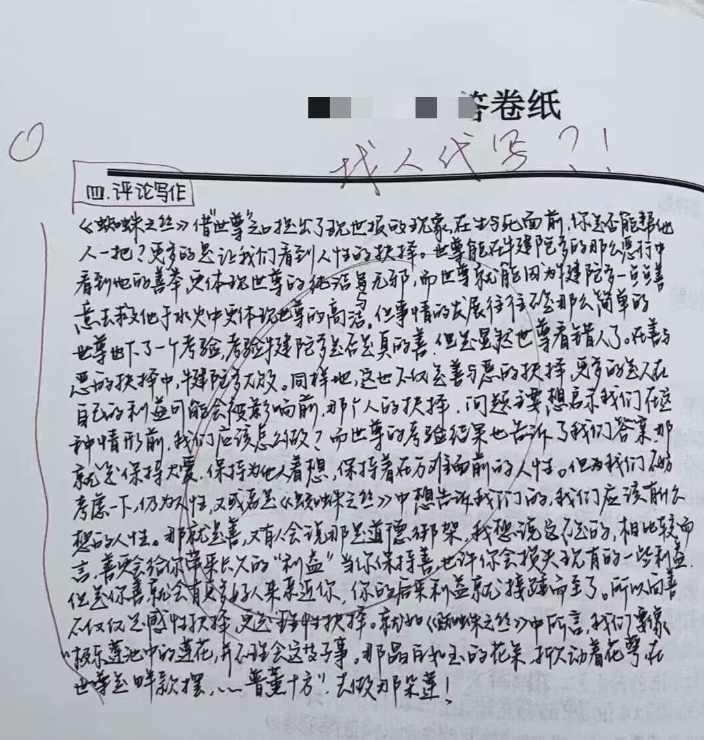 答卷纸
找人代写?!
四.评论写作
《蜘蛛之丝》借"世尊"之口提出了现世报的现象,在生与死面前,你是否能帮他
人一把?更多的是让我们看到人性的抉择。世尊能在犍陀多的那么恶行中
看到他的善举,更体现世尊的纯洁与无邪,而世尊就能因为犍陀多一点点善
意去救他于水火中更体现世尊的高洁。但事情的发展往往不会那么简单的
世尊也下了一个考验,考验犍陀多是否是真的善。但是显然世尊看错人了。在善与
恶的抉择中,犍陀多大败。同样地,这也不仅是善与恶的抉择,更多的是人在
自己的利益可能会被影响前,那个人的抉择。问题主要想启示我们在这
种情形前,我们应该怎么做?而世尊的考验结果也告诉了我们答案,那
就是保持大爱,保持为他人着想,保持着在万难面前的人性。但为我们不妨
考虑一下,仍为人性,又或者是《蜘蛛之丝》中想告诉我们的,我们应该有什么
想的人性。那就是善,又有人会说那是道德绑架,我想说完不是的,相比较而
言,善更会给你带来长久的"利益"当你保持善,也许你会损失现有的一些利益,
但是你善就会有更多好人来亲近你,你的后来利益就接踵而至了。所以向善
不仅仅是感性抉择,更是理性抉择。就如《蜘蛛之丝》中所言,我们要像
"极乐莲池中的莲花,并不理会这等事。那晶白如玉的花朵,掀动着花萼在
世尊足畔款摆,……普薰十方".去做那朵莲!